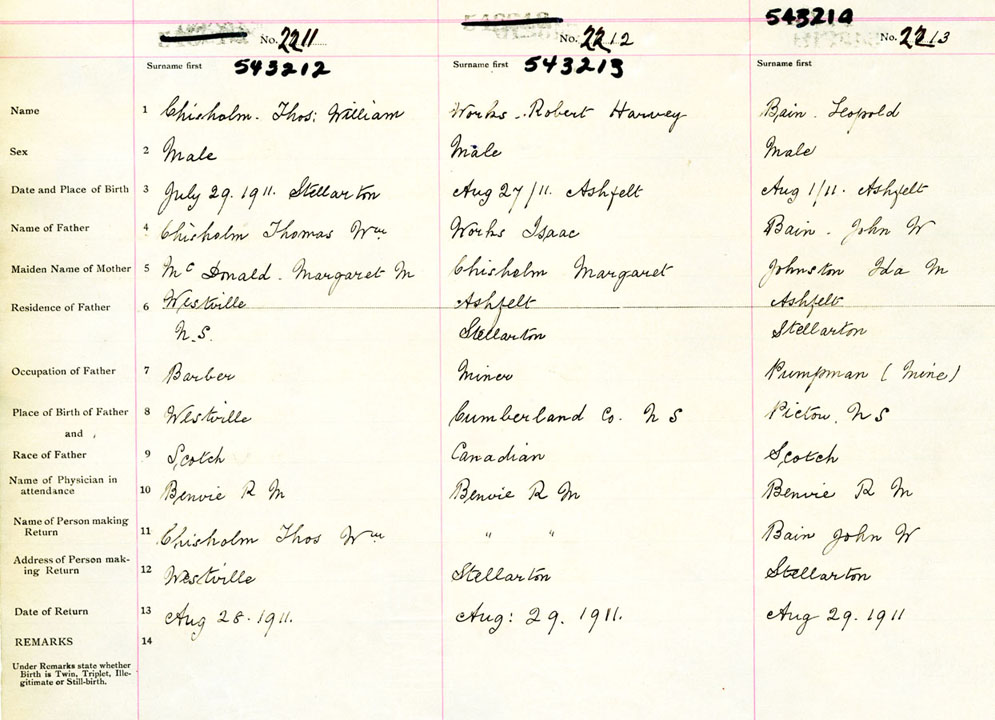 543214
No. 2211 No. 2212 No. 2213
Surname first 543212 Surname first 543213 Surname first
Name 1 Chisholm. Thos: William Works. Robert Harvey Bain. Leopold
Sex 2 Male Male Male
Date and Place of Birth 3 July 29. 1911. Stellarton Aug 27/11. Ashfelt Aug 1/11. Ashfelt
Name of Father 4 Chisholm Thomas Wm Works Isaac Bain. John W
Maiden Name of Mother 5 Mc Donald. Margaret M Chisholm Margaret Johnston Ida M
Residence of Father 6 Westville Ashfelt Ashfelt
N.S. Stellarton Stellarton
Occupation of Father 7 Barber Miner Pumpman (Mine)
Place of Birth of Father 8 Westville Cumberland Co. N S Pictou. N S
and
Race of Father 9 Scotch Canadian Scotch
Name of Physician in
attendance 10 Benvie R M Benvie R M Benvie R M
Name of Person making
Return 11 Chisholm Thos Wm " " Bain John W
Address of Person mak-
ing Return 12 Westville Stellarton Stellarton
Date of Return 13 Aug 28. 1911. Aug: 29. 1911. Aug 29. 1911
REMARKS 14
Under Remarks state whether
Birth is Twin, Triplet, Ille-
gitimate or Still-birth.